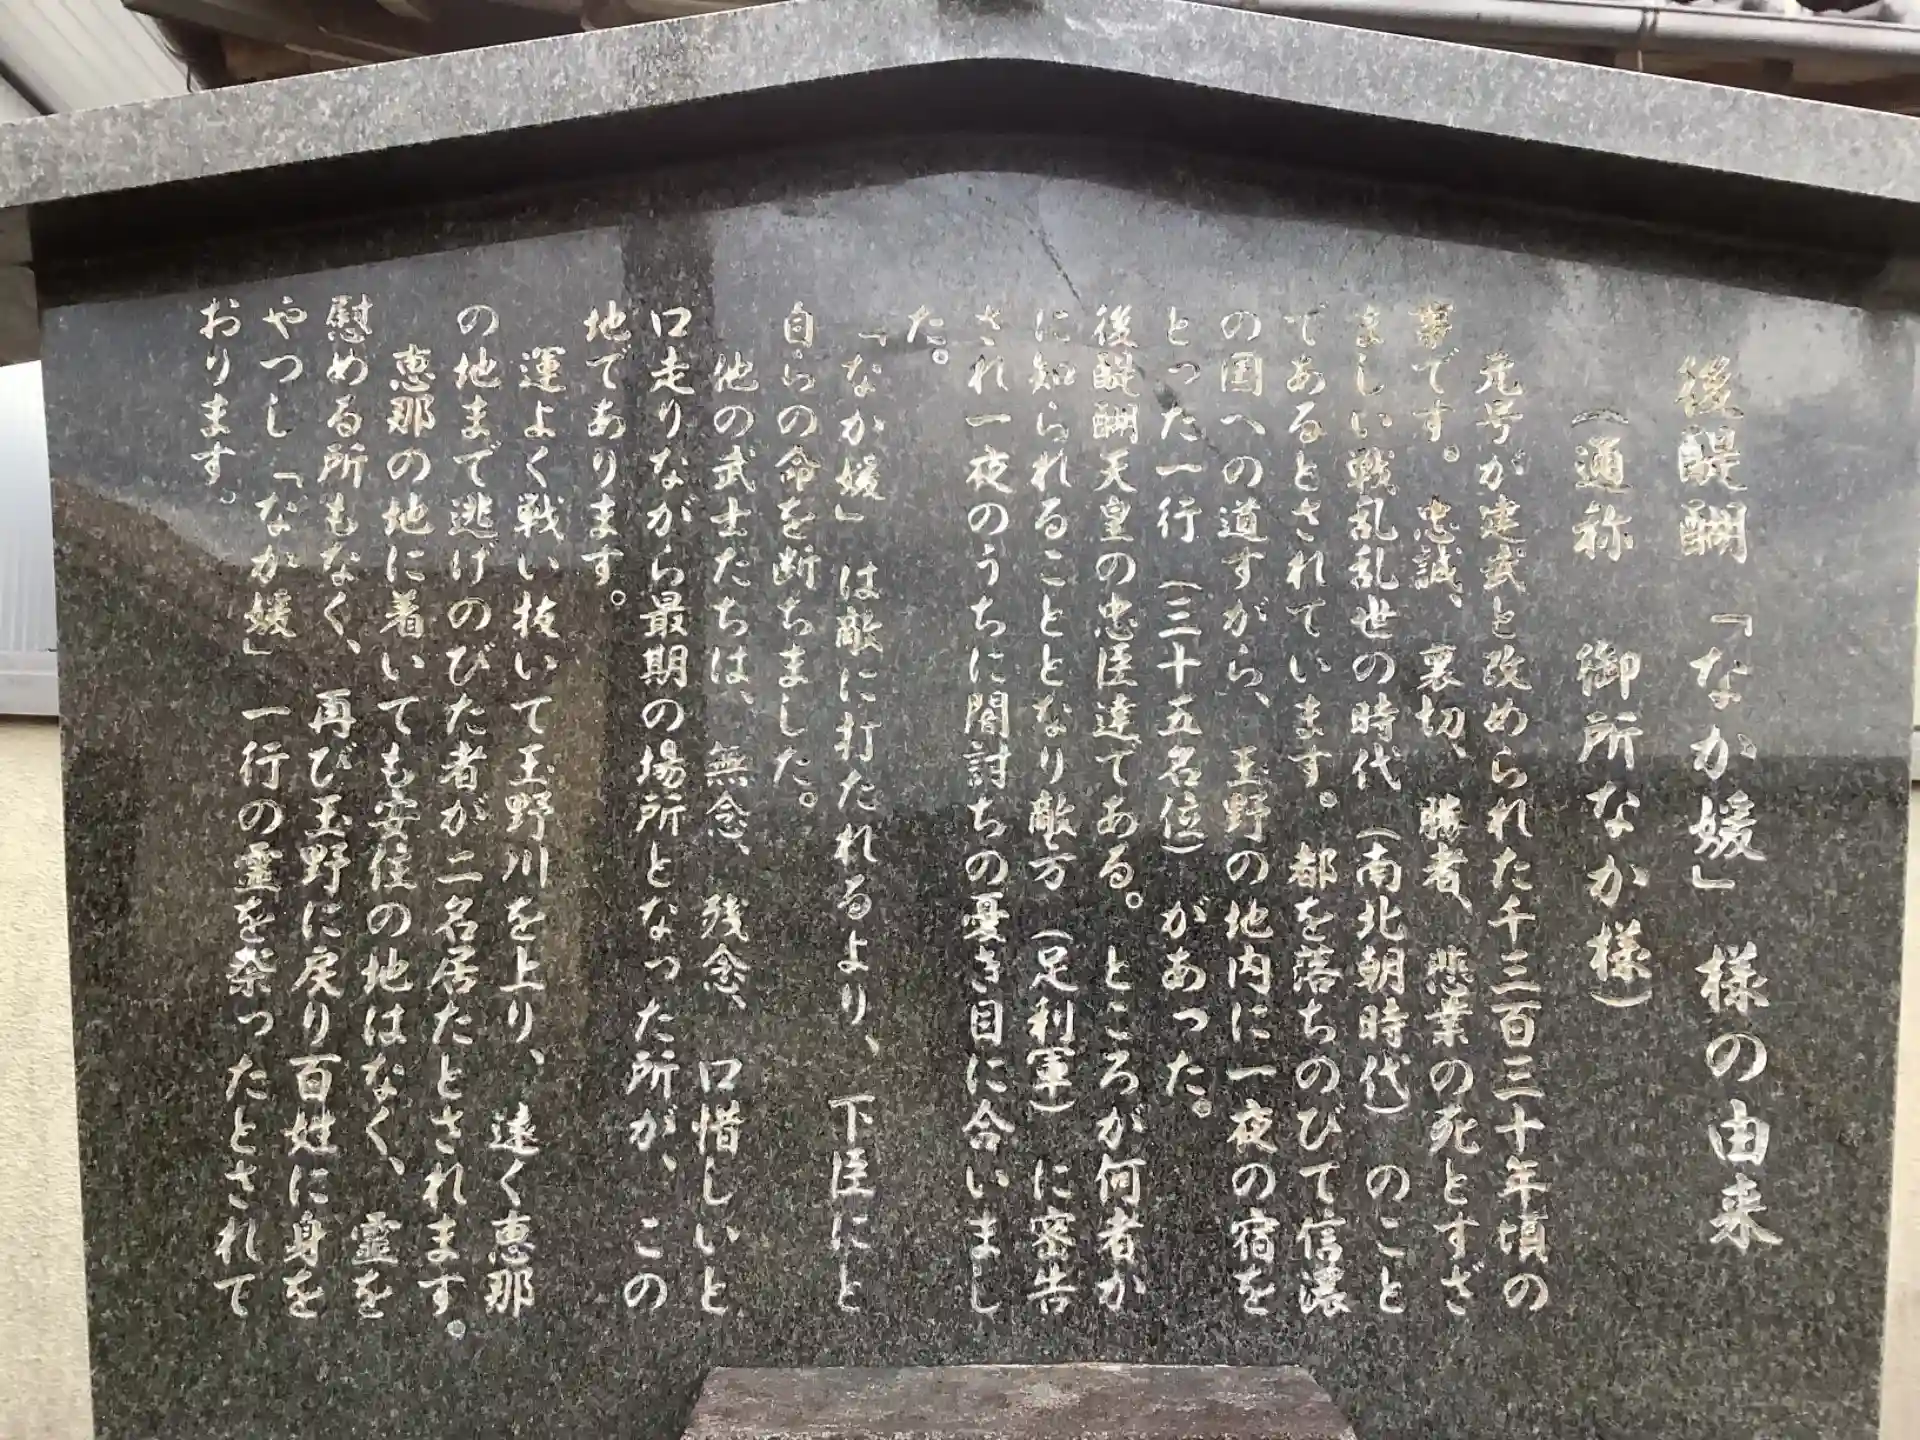 後醍醐「なか媛」様の由来
（通称　御所なか様）
元号が建武と改められた千三百三十年頃の
事です。忠誠、裏切、勝者、悲業の死とすざ
ましい戦乱乱世の時代（南北朝時代）のこと
であるとされています。都を落ちのびて信濃
の国への道すがら、玉野の地内に一夜の宿を
とった一行（三十五名位）があった。
後醍醐天皇の忠臣達である。ところが何者か
に知られることとなり敵方（足利軍）に密告
され一夜のうちに闇討ちの憂き目に合いまし
た。
「なか媛」は敵に打たれるより、下臣にと
自らの命を断ちました。
他の武士たちは、無念、残念、口惜しいと
口走りながら最期の場所となった所が、この
地であります。
運よく戦い抜いて玉野川を上り、遠く恵那
の地まで逃げのびた者が二名居たとされます。
恵那の地に着いても安住の地はなく、霊を
慰める所もなく、再び玉野に戻り百姓に身を
やつし「なか媛」一行の霊を祭ったとされて
おります。